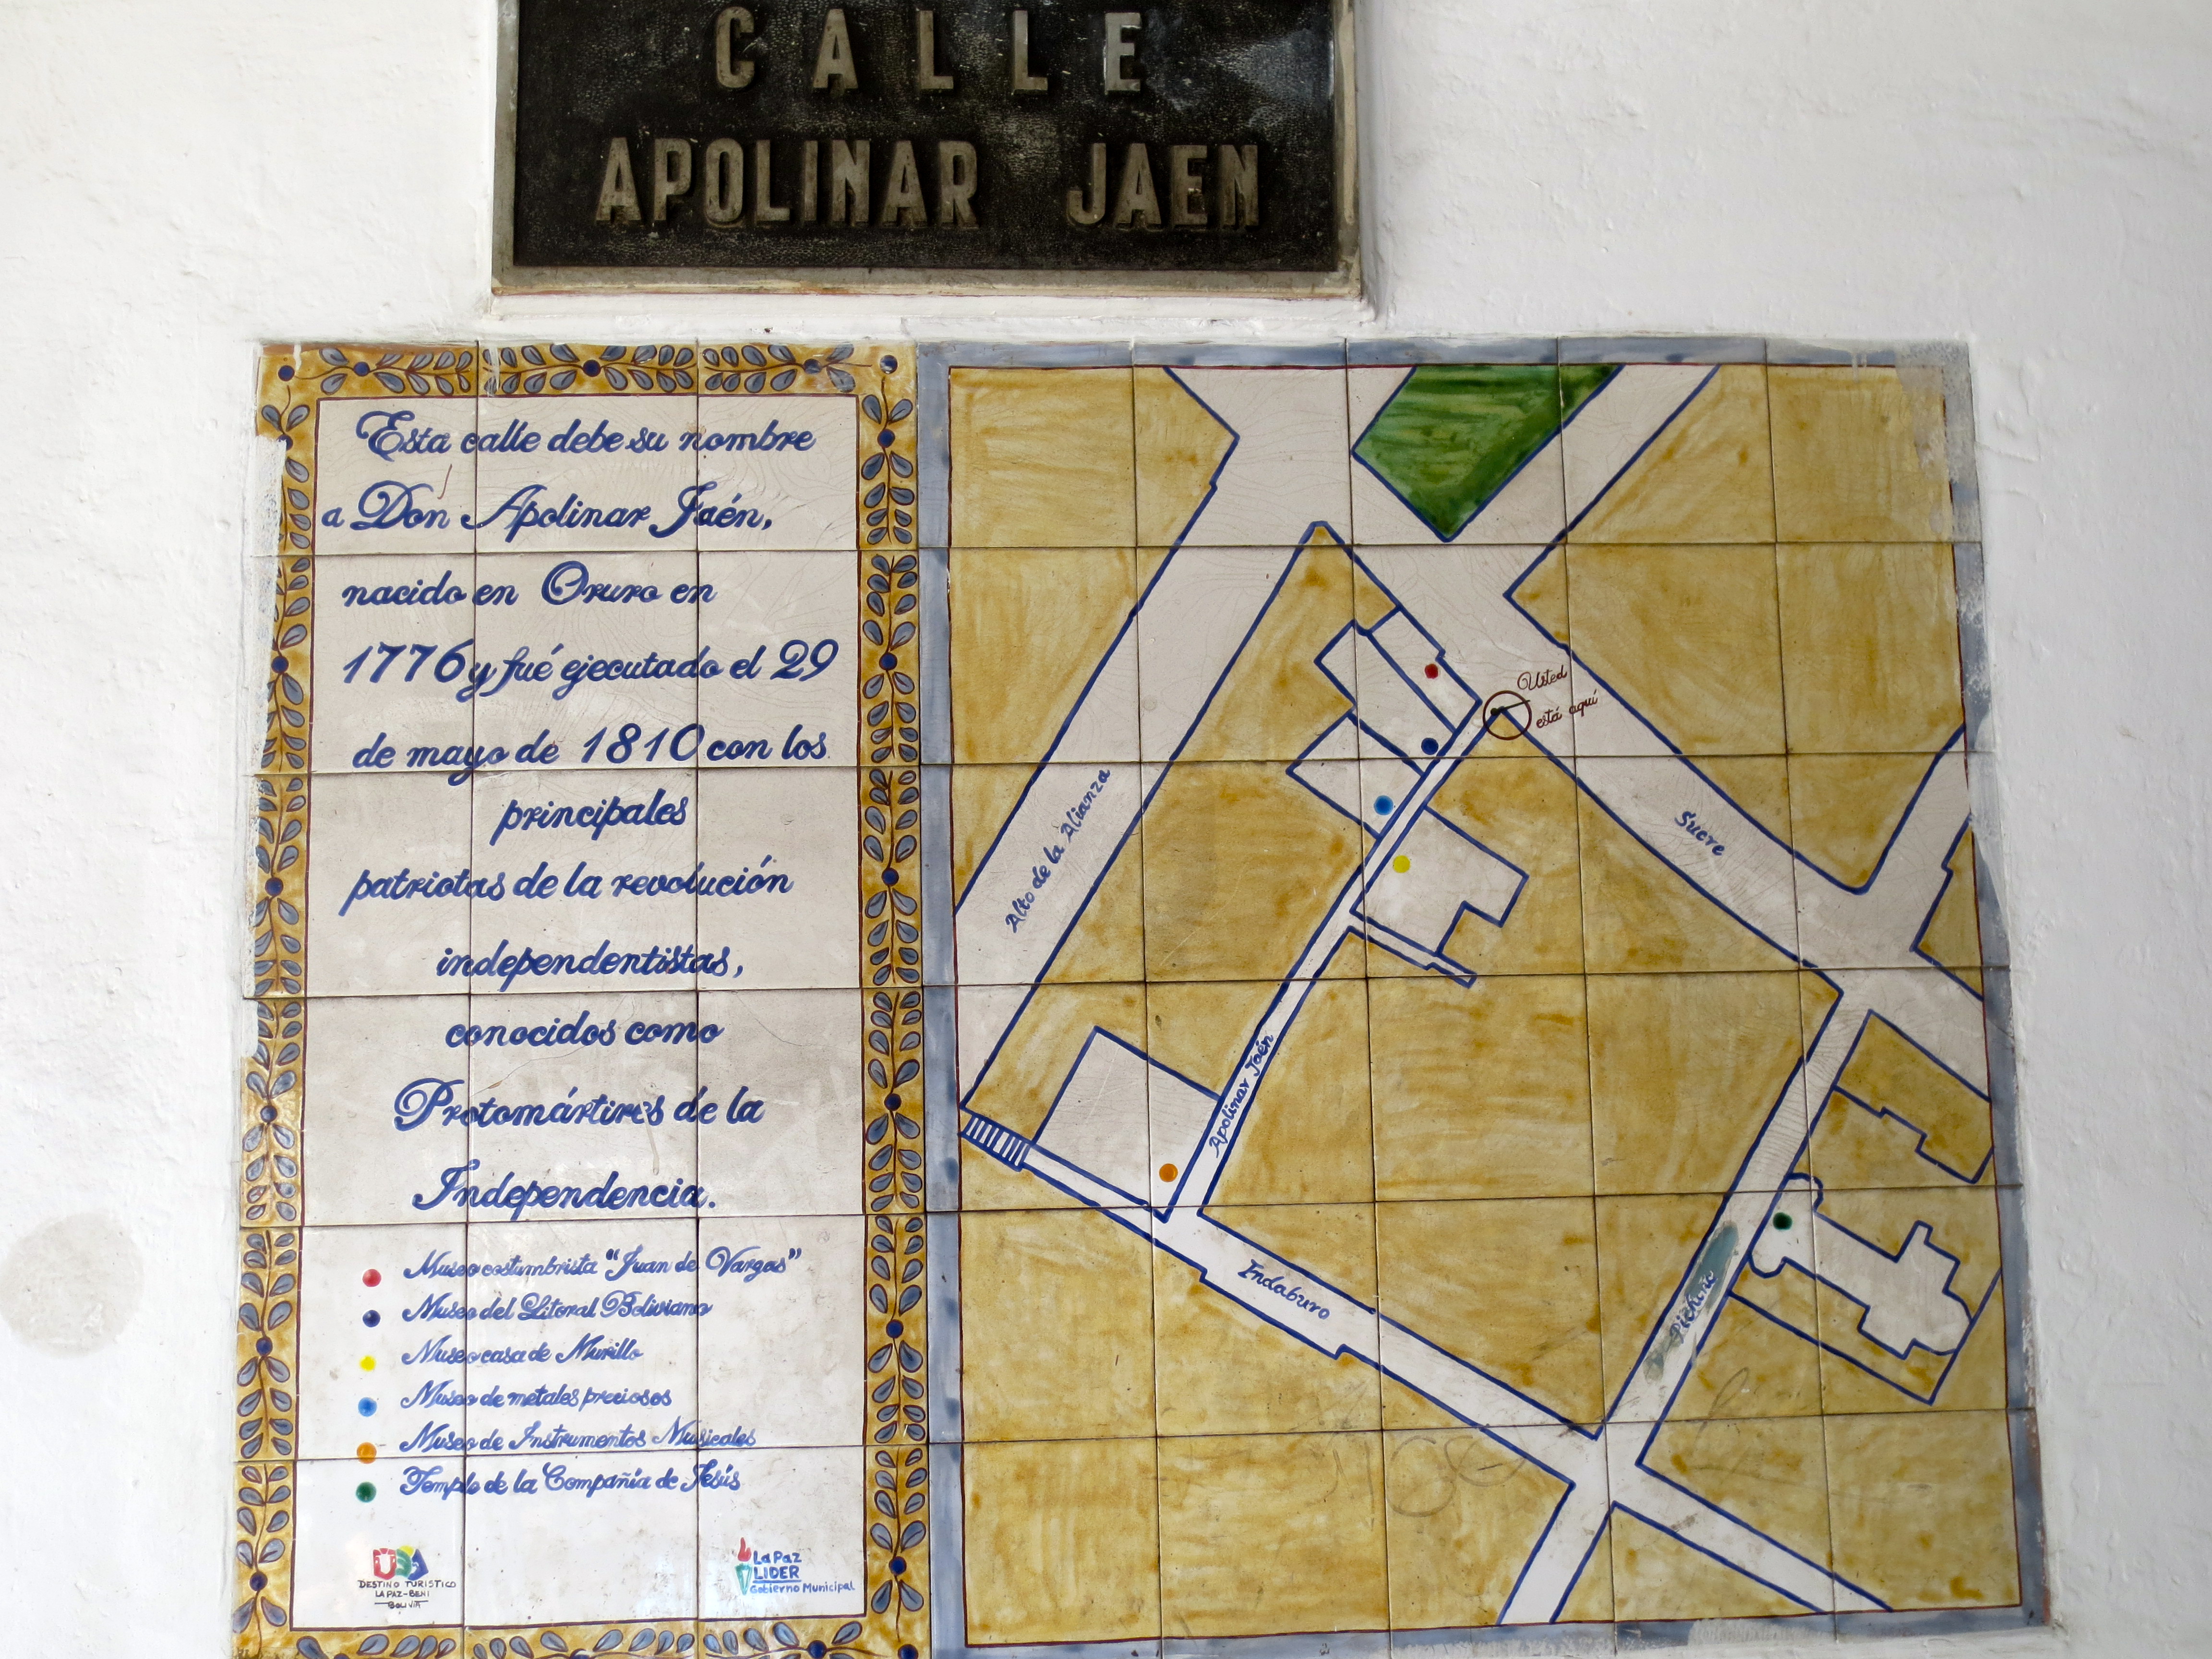 CALLE
APOLINAR JAEN
Esta calle debe su nombre
a Don Apolinar Jaén,
nacido en Oruro en
1776 y fué ejecutado el 29
de mayo de 1810 con los
principales
patriotas de la revolución
independentistas,
conocidos como
Protomártires de la
Independencia.
Museo costumbrista "Juan de Vargas"
Museo del Litoral Boliviano
Museo casa de Murillo
Museo de metales preciosos
Museo de Instrumentos Musicales
Templo de la Compañía de Jesús
DESTINO TURISTICO
LA PAZ-BENI
BOLIVIA
La Paz
LIDER
Gobierno Municipal
Usted
está aquí
Alto de la Alianza
Sucre
Apolinar Jaén
Indaburo